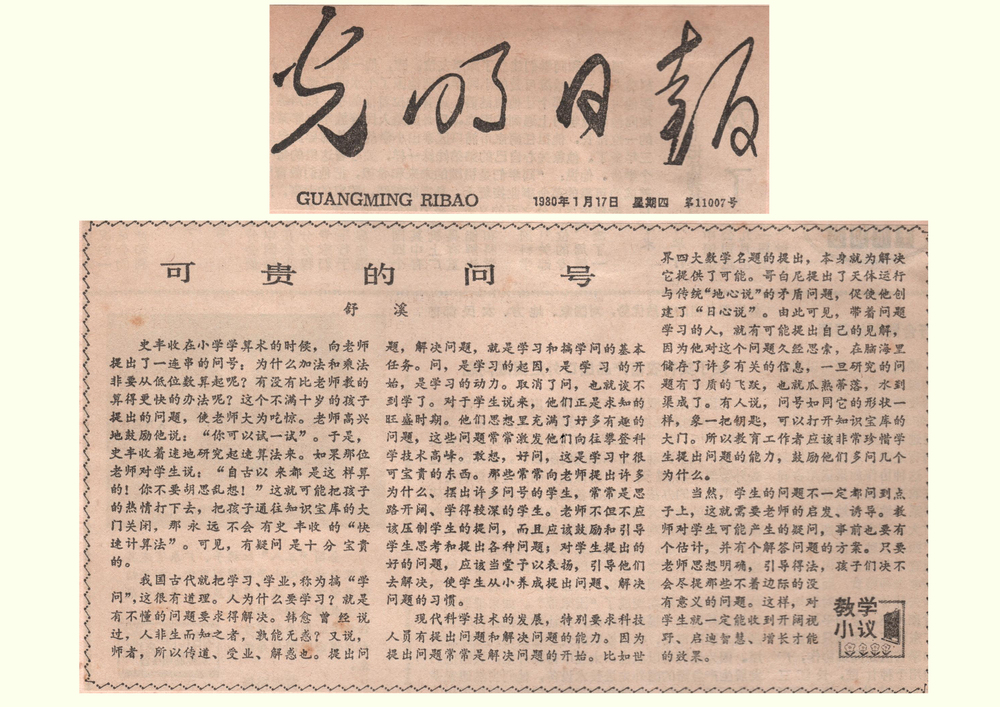 光明日报
GUANGMING RIBAO
1980年1月17日 星期四 第11007号
可贵的问号
舒溪
史丰收在小学学算术的时候，向老师
提出了一连串的问号：为什么加法和乘法
非要从低位数算起呢？有没有比老师教的
算得更快的办法呢？这个不满十岁的孩子
提出的问题，使老师大为吃惊。老师高兴
地鼓励他说：“你可以试一试”。于是，
史丰收着迷地研究起速算法来。如果那位
老师对学生说：“自古以来都是这样算
的！你不要胡思乱想！”这就可能把孩子
的热情打下去，把孩子通往知识宝库的大
门关闭，那永远不会有史丰收的“快
速计算法”。可见，有疑问是十分宝贵
的。
我国古代就把学习、学业，称为搞“学
问”，这很有道理。人为什么要学习？就是
有不懂的问题要求得解决。韩愈曾经说
过，人非生而知之者，孰能无惑？又说，
师者，所以传道、受业、解惑也。提出问
题，解决问题，就是学习和搞学问的基本
任务。问，是学习的起因，是学习的开
始，是学习的动力。取消了问，也就谈不
到学了。对于学生说来，他们正是求知的
旺盛时期。他们思想里充满了好多有趣的
问题，这些问题常常激发他们向往攀登科
学技术高峰。敢想，好问，这是学习中很
可宝贵的东西。那些常常向老师提出许多
为什么、摆出许多问号的学生，常常是思
路开阔、学得较深的学生。老师不但不应
该压制学生的提问，而且应该鼓励和引导
学生思考和提出各种问题；对学生提出的
好的问题，应该当堂予以表扬，引导他们
去解决，使学生从小养成提出问题、解决
问题的习惯。
现代科学技术的发展，特别要求科技
人员有提出问题和解决问题的能力。因为
提出问题常常是解决问题的开始。比如世
界四大数学名题的提出，本身就为解决
它提供了可能。哥白尼提出了天体运行
与传统“地心说”的矛盾问题，促使他创
建了“日心说”。由此可见，带着问题
学习的人，就有可能提出自己的见解，
因为他对这个问题久经思索，在脑海里
储存了许多有关的信息，一旦研究的问
题有了质的飞跃，也就瓜熟蒂落，水到
渠成了。有人说，问号如同它的形状一
样，象一把钥匙，可以打开知识宝库的
大门。所以教育工作者应该非常珍惜学
生提出问题的能力，鼓励他们多问几个
为什么。
当然，学生的问题不一定都问到点
子上，这就需要老师的启发、诱导。教
师对学生可能产生的疑问，事前也要有
个估计，并有个解答问题的方案。只要
老师思想明确，引导得法，孩子们决不
会尽提那些不着边际的没
有意义的问题。这样，对
学生就一定能收到开阔视
野、启迪智慧、增长才能
的效果。
教学
小议